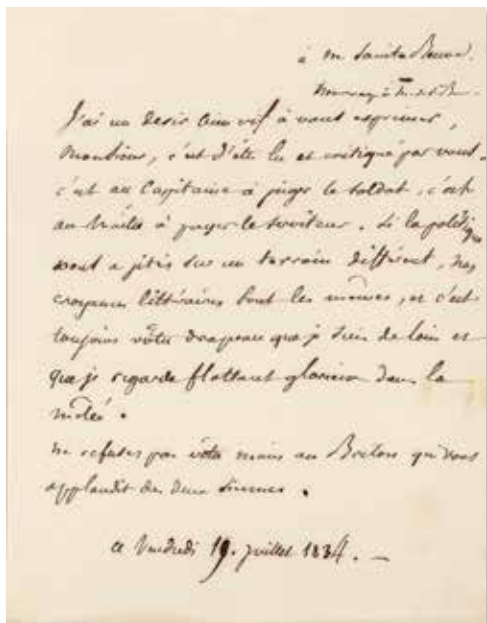 à m Sainte Beuve.
J'ai un desir bien vif à vous exprimer,
Monsieur, c'est d'être lu et critiqué par vous.
c'est au Capitaine à juger le soldat, c'est
au Maître à payer le serviteur. Si la politique
nous a jetés sur un terrain différent, nos
croyances littéraires sont les mêmes, et c'est
toujours votre drapeau que je suis de loin et
que je regarde flottant glorieux dans la
mêlée.
ne refusez pas votre main au Breton qui vous
applaudit des deux siennes.
a Vendredi 19. juillet 1834. —